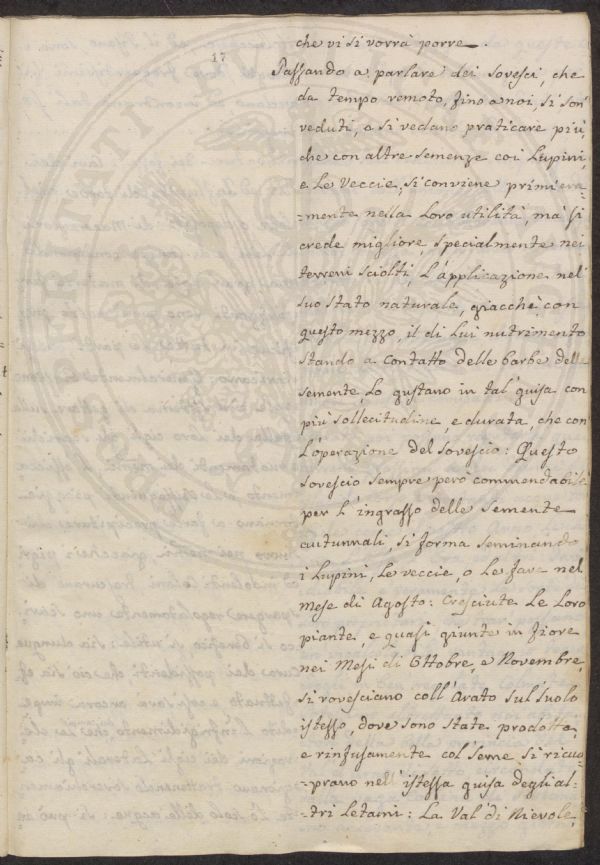 17
che vi si vorrà porre.
Passando a parlare dei sovesci, che
da tempo remoto, fino a noi, si son
veduti, e si vedano praticare più
che con altre semenze coi Lupini,
e Le Veccie, si conviene primiera=
=mente nella Loro utilità, mà si
crede migliore, specialmente nei
terreni sciolti, L'applicazione nel
suo stato naturale, giacchè, con
questo mezzo, il di Lui nutrimento
stando a contatto delle barbe delle
semente, Lo gustano in tal guisa con
più sollecitudine, e durata, che con
L'operazione del sovescio: Questo
sovescio sempre però commendabile
per L'ingrasso delle semente
autunnali, si forma seminando
i Lupini, Le veccie, o Le fave nel
Mese di Agosto: Cresciute Le Loro
piante, e quasi giunte in fiore
nei Mesi di Ottobre, e Novembre,
si rovesciano coll'Arato sul suolo
istesso, dove sono state prodotte,
e rinfusamente col seme, si ricuo=
=prano nell'istessa guisa degli al=
=tri Letami: La Val di Nievole,